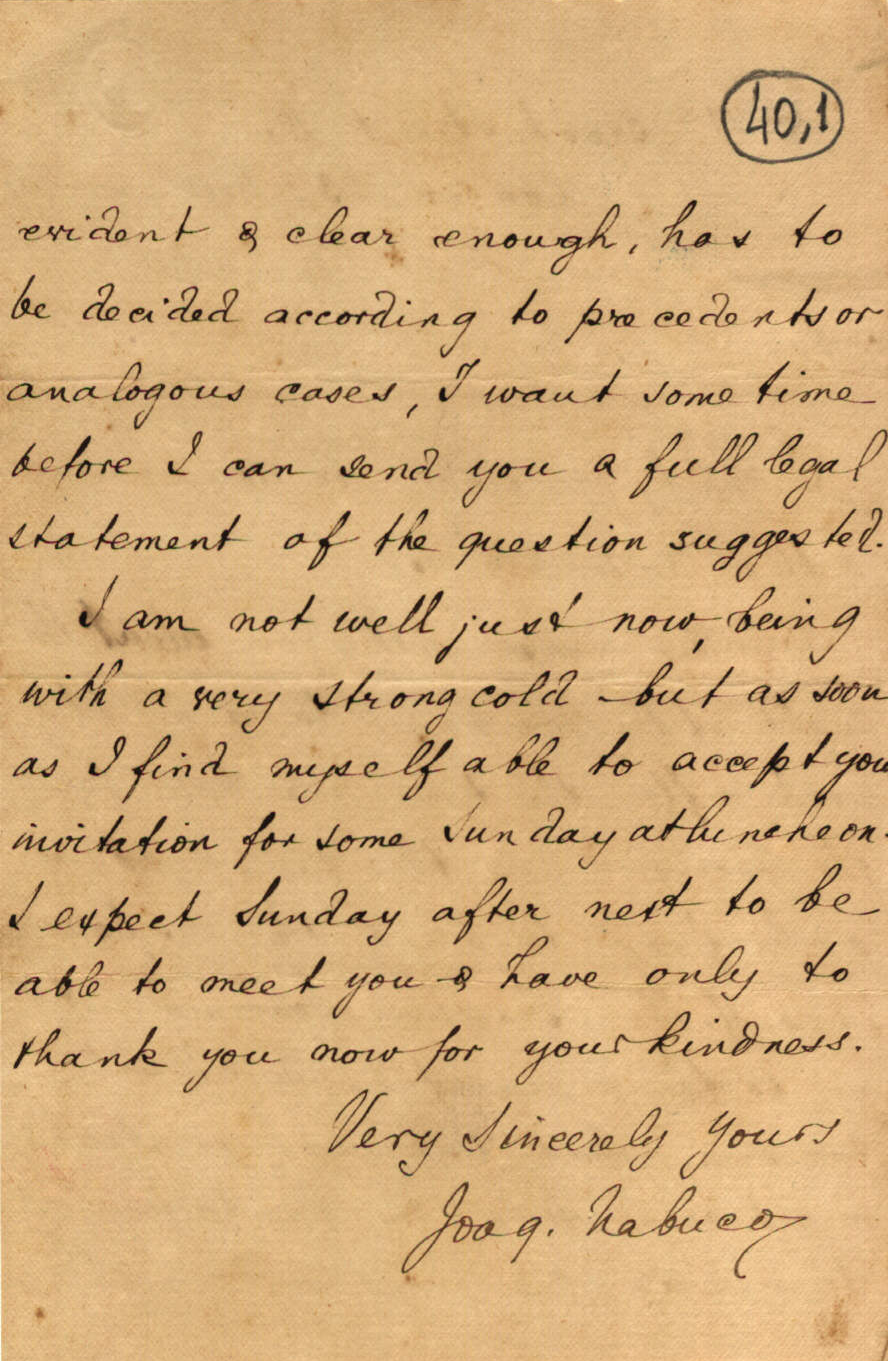 40,1
evident & clear enough, has to
be decided according to precedents or
analogous cases, I want some time
before I can send you a full legal
statement of the question suggested.
I am not well just now, being
with a very strong cold - but as soon
as I find myself able to accept you
invitation for some Sunday at luncheon.
I expect Sunday after next to be
able to meet you & have only to
thank you now for your kindness.
Very Sincerely Yours
Joaq. Nabuco